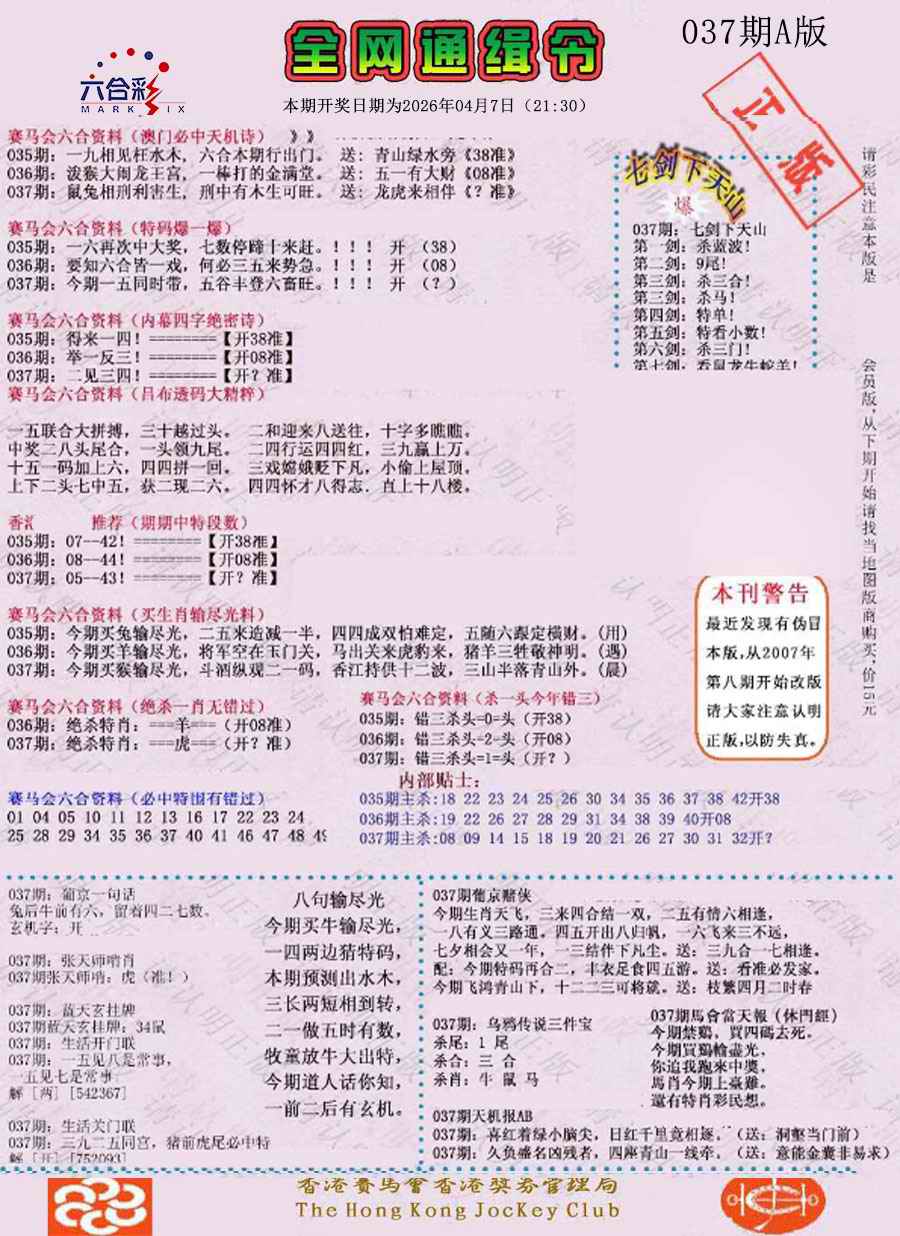 全网通缉令
037期A版
六合彩
MARK SIX
本期开奖日期为2026年04月7日（21:30）
正版
赛马会六合资料（澳门必中天机诗） 》》
035期: 一九相见枉水木, 六合本期行出门。 送: 青山绿水旁《38准》
036期: 泼猴大闹龙王宫, 一棒打的金满堂。 送: 五一有大财《08准》
037期: 鼠兔相刑利害生, 刑中有木生可旺。 送: 龙虎来相伴《？准》
赛马会六合资料（特码爆一爆）
035期: 一六再次中大奖, 七数停蹄十来赶。！！！ 开 （38）
036期: 要知六合皆一戏, 何必三五来势急。！！！ 开 （08）
037期: 今期一五同时带, 五谷丰登六畜旺。！！！ 开 （？）
赛马会六合资料（内幕四字绝密诗）
035期: 得来一四！========【开38准】
036期: 举一反三！========【开08准】
037期: 二见三四！========【开？准】
赛马会六合资料（吕布透码大精粹）
一五联合大拼搏, 三十越过头。 二和迎来八送往, 十字多瞧瞧。
中奖二八头尾合, 一头领九尾。 二四行运四四红, 三九赢上万。
十五一码加上六, 四四拼一回。 三戏嫦娥贬下凡, 小偷上屋顶。
上下二头七中五, 获二现二六。 四四怀才八得志. 直上十八楼。
推荐（期期中特段数）
035期: 07--42！========【开38准】
036期: 08--44！========【开08准】
037期: 05--43！========【开？准】
赛马会六合资料（买生肖输尽光料）
035期: 今期买兔输尽光, 二五来造减一半, 四四成双怕难定, 五随六跟定横财。(用)
036期: 今期买羊输尽光, 将军空在玉门关, 马出关来虎豹来, 猪羊三牲敬神明。(遇)
037期: 今期买猴输尽光, 斗酒纵观二一码, 香江持供十二波, 三山半落青山外。(晨)
赛马会六合资料（绝杀一肖无错过）
036期: 绝杀特肖: ===羊===（开08准）
037期: 绝杀特肖: ===虎===（开？准）
赛马会六合资料（杀一头今年错三）
035期: 错三杀头=0=头（开38）
036期: 错三杀头=2=头（开08）
037期: 错三杀头=1=头（开？）
赛马会六合资料（必中特围有错过）
01 04 05 10 11 12 13 16 17 22 23 24
25 28 29 34 35 36 37 40 41 46 47 48 49
内部贴士:
035期主杀:18 22 23 24 25 26 30 34 35 36 37 38 42开38
036期主杀:19 22 26 27 28 29 31 34 38 39 40开08
037期主杀:08 09 14 15 18 19 20 21 26 27 30 31 32开?
七剑下天山
爆
037期: 七剑下天山
第一剑: 杀蓝波!
第二剑: 9尾!
第三剑: 杀三合!
第三剑: 杀马!
第四剑: 特单!
第五剑: 特看小数!
第六剑: 杀三门!
第七剑: 看鼠龙牛蛇羊!
请彩民注意本版是
会员版,从下期开始请找当地图版商购买,价15元
本刊警告
最近发现有伪冒
本版,从2007年
第八期开始改版
请大家注意认明
正版,以防失真。
037期: 葡京一句话
兔后牛前有六, 留着四二七数。
玄机字: 开
037期: 张天师哨肖
037期张天师哨: 虎（准！）
037期: 蓝天玄挂牌
037期蓝天玄挂牌: 34鼠
037期: 生活开门联
037期: 一五见八是常事,
一五见七是常事
解 [两] [542367]
037期: 生活关门联
037期: 三九二五同宫, 猪前虎尾必中特
解 [开] [752093]
八句输尽光
今期买牛输尽光,
一四两边猜特码,
本期预测出水木,
三长两短相到转,
二一做五时有数,
牧童放牛大出特,
今期道人话你知,
一前二后有玄机。
037期葡京赌侠
今期生肖天飞, 三来四合结一双, 二五有情六相逢,
一八有义三路通。四五开出八归帆, 一六飞来三不远,
七夕相会又一年, 一三结伴下凡尘。送: 三九合一七相逢。
配: 今期特码再合二, 丰衣足食四五游。送: 看准必发家。
今期飞鸿青山下, 十二二三可将葳。送: 枝繁四月二时春
037期: 乌鸦传说三件宝
杀尾: 1 尾
杀合: 三 合
杀肖: 牛 鼠 马
037期馬會當天報（休門經）
今期禁鷄, 買四碼去死。
今期買鷄輸盡光,
你追我跑來中獎,
馬肖今期上臺難。
還有特肖彩民想。
037期天机报AB
037期: 喜红着绿小脑尖, 日红千里竟相逐。（送: 洞壑当门前）
037期: 久负盛名凶残者, 四座青山一线牵。（送: 意能金囊非易求）
香港賽馬會香港獎券管理局
The Hong Kong JocKey Club